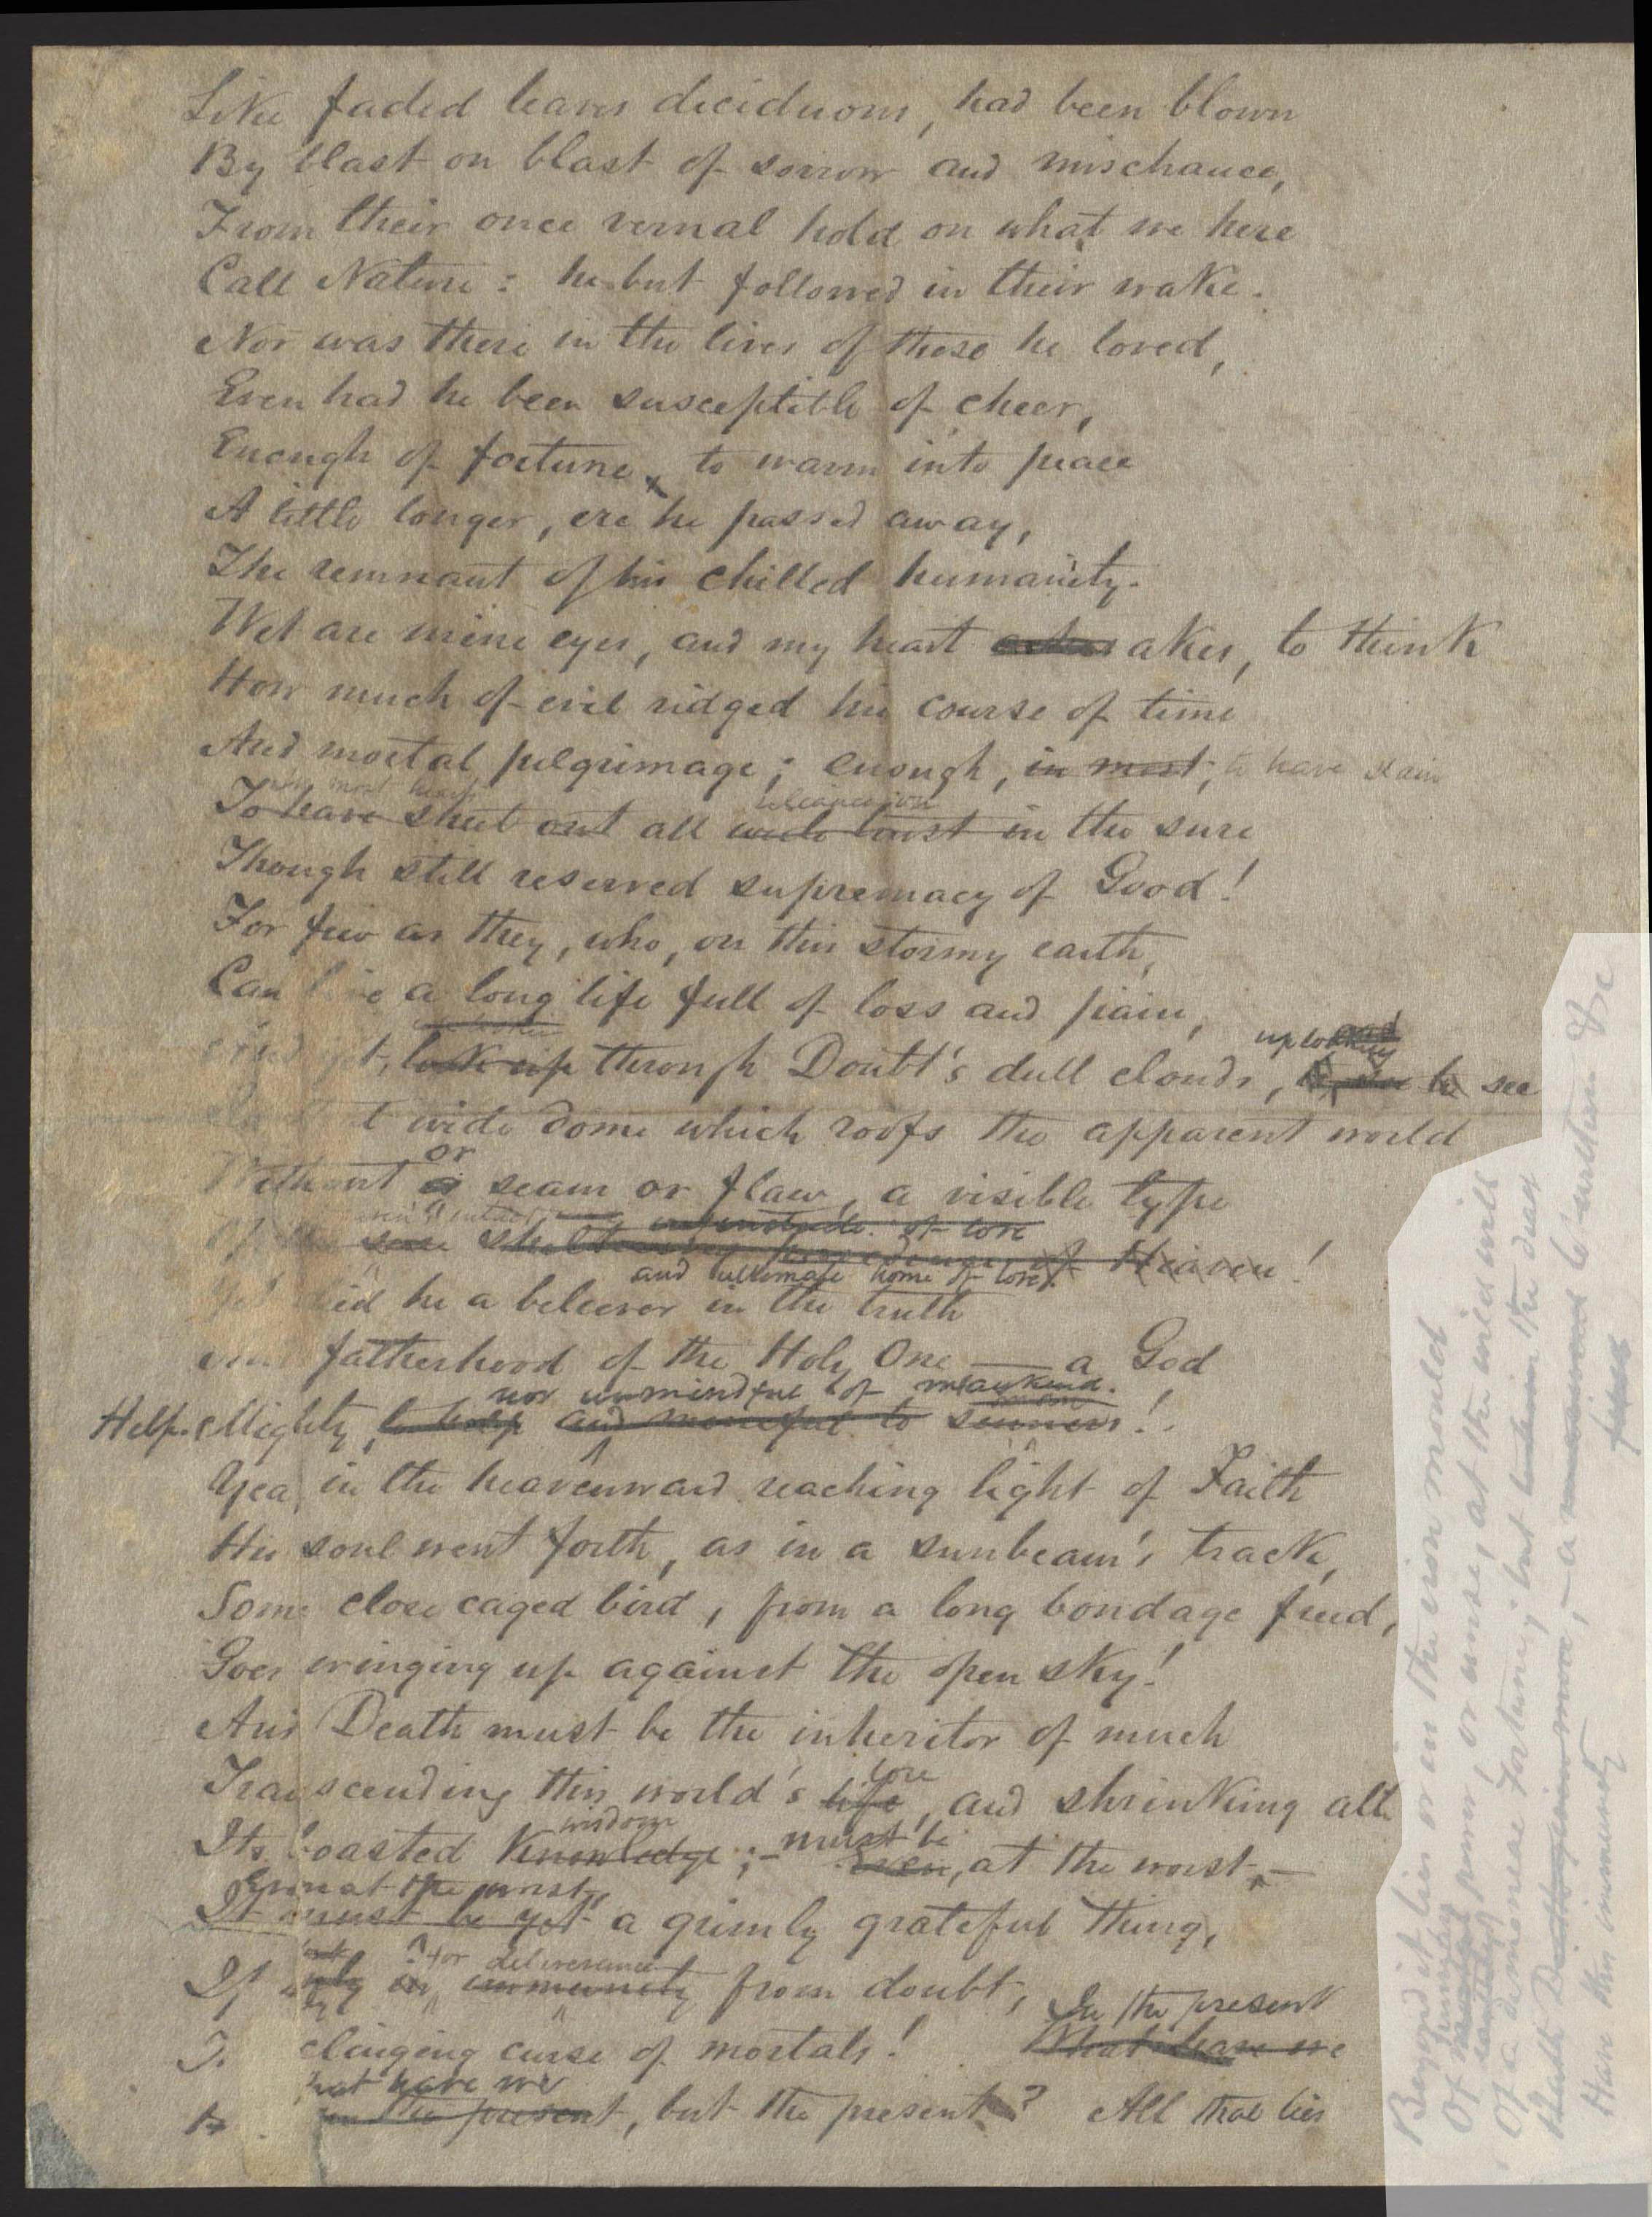 Like faded leaves deciduous, had been blown
By blast on blast of sorrow and mischance,
From their once vernal hold on what we here
Call Nature: he but followed in their wake.
Nor was there in the lives of those he loved,
Even had he been susceptible of cheer,
Enough of fortune, to warm into peace
A little longer, ere he passed away,
The remnant of his chilled humanity.
Wet are mine eyes, and my heart akes, to think
How much of evil ridged his course of time
And mortal pilgrimage; enough, in most, to have slain
in most hearts
reliance on
To have shut out all in the sure
Though still reserved supremacy of Good!
For few are they, who, on this stormy earth,
Can live a long life full of loss and pain,
uplooking
yet, look up through Doubt's dull clouds, to see
t wide dome which roofs the apparent world
or
Without a seam or flaw, a visible type
of love
of Heaven!
and ultimate home of love
died he a believer in the truth
fatherhood of the Holy One — a God
nor unmindful of mankind.
Help. Mighty to help and merciful to sinners!
Yea, in the heavenward reaching light of Faith
His soul went forth, as in a sunbeam's track,
Some close caged bird, from a long bondage freed,
Goes winging up against the open sky!
And Death must be the inheritor of much
lore
Transcending this world's life, and shrinking all
wisdom must be
Its boasted Knowledge;— Even, at the worst,—
Even at the worst,
It must be yet a grimly grateful thing,
for deliverance
If only in immunity from doubt,
In the present
clinging curse of mortals! What have we
what have we
in the present, but the present? All that lies
Beyond it lies or in the even mould
Of primary power, or
earthly
Of a dimense Fortuning; but the dread
Death
Have this immunity